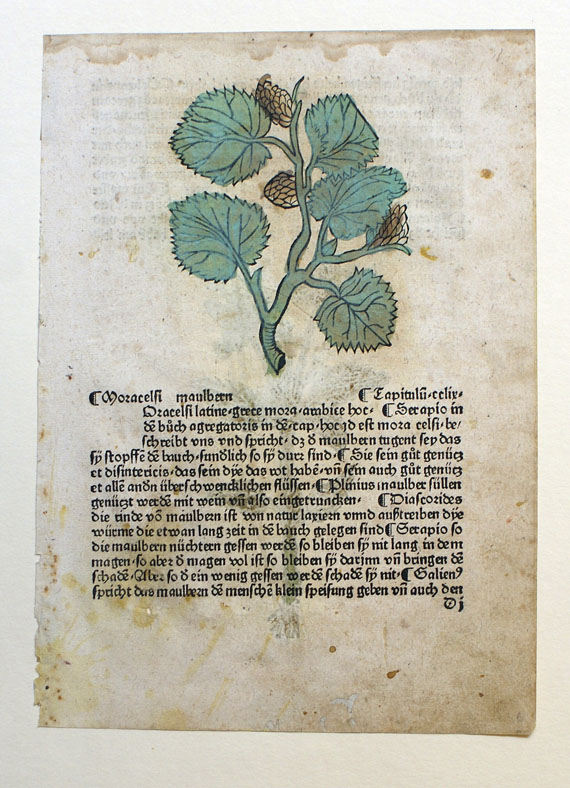 ¶Moracelsi maulbern ¶Capitulū·cclix·
Oracelsi latine·grece mora·arabice hoc· ¶Serapio in
dē bůch agregatoris in dē·cap·hoc id est mora celsi·be⸗
schreibt vns vnd spricht· dz d̄ maulbern tugent sey das
sÿ stopffē dē bauch·sundlich so sÿ durz sind·¶Sie sein gůt genüczt
et disintericis·das sein dÿe das rot habē·vn̄ sein auch gůt genüczt
et allē andn̄ überschwencklichen flüssen·¶Plinius maulber süllen
genüczt werdē mit wein vn̄ also eingetruncken· ¶Diascorides
die rinde vō maulbern ist von natur laxiern vnnd außtreiben dÿe
würme die etwan lang zeit in dē bauch gelegen sind¶Serapio so
die maulbern nüchtern gessen werdē so bleiben sÿ nit lang in dem
magen·so aber d̄ magen vol ist so bleiben sÿ darjnn vn̄ bringen dē
schadē·Aber so d̄ ein wenig gessen werdē schadē sÿ nit·¶Galienꝰ
spricht das maulbern dē menschē klein speisung geben vn̄ auch den
D j